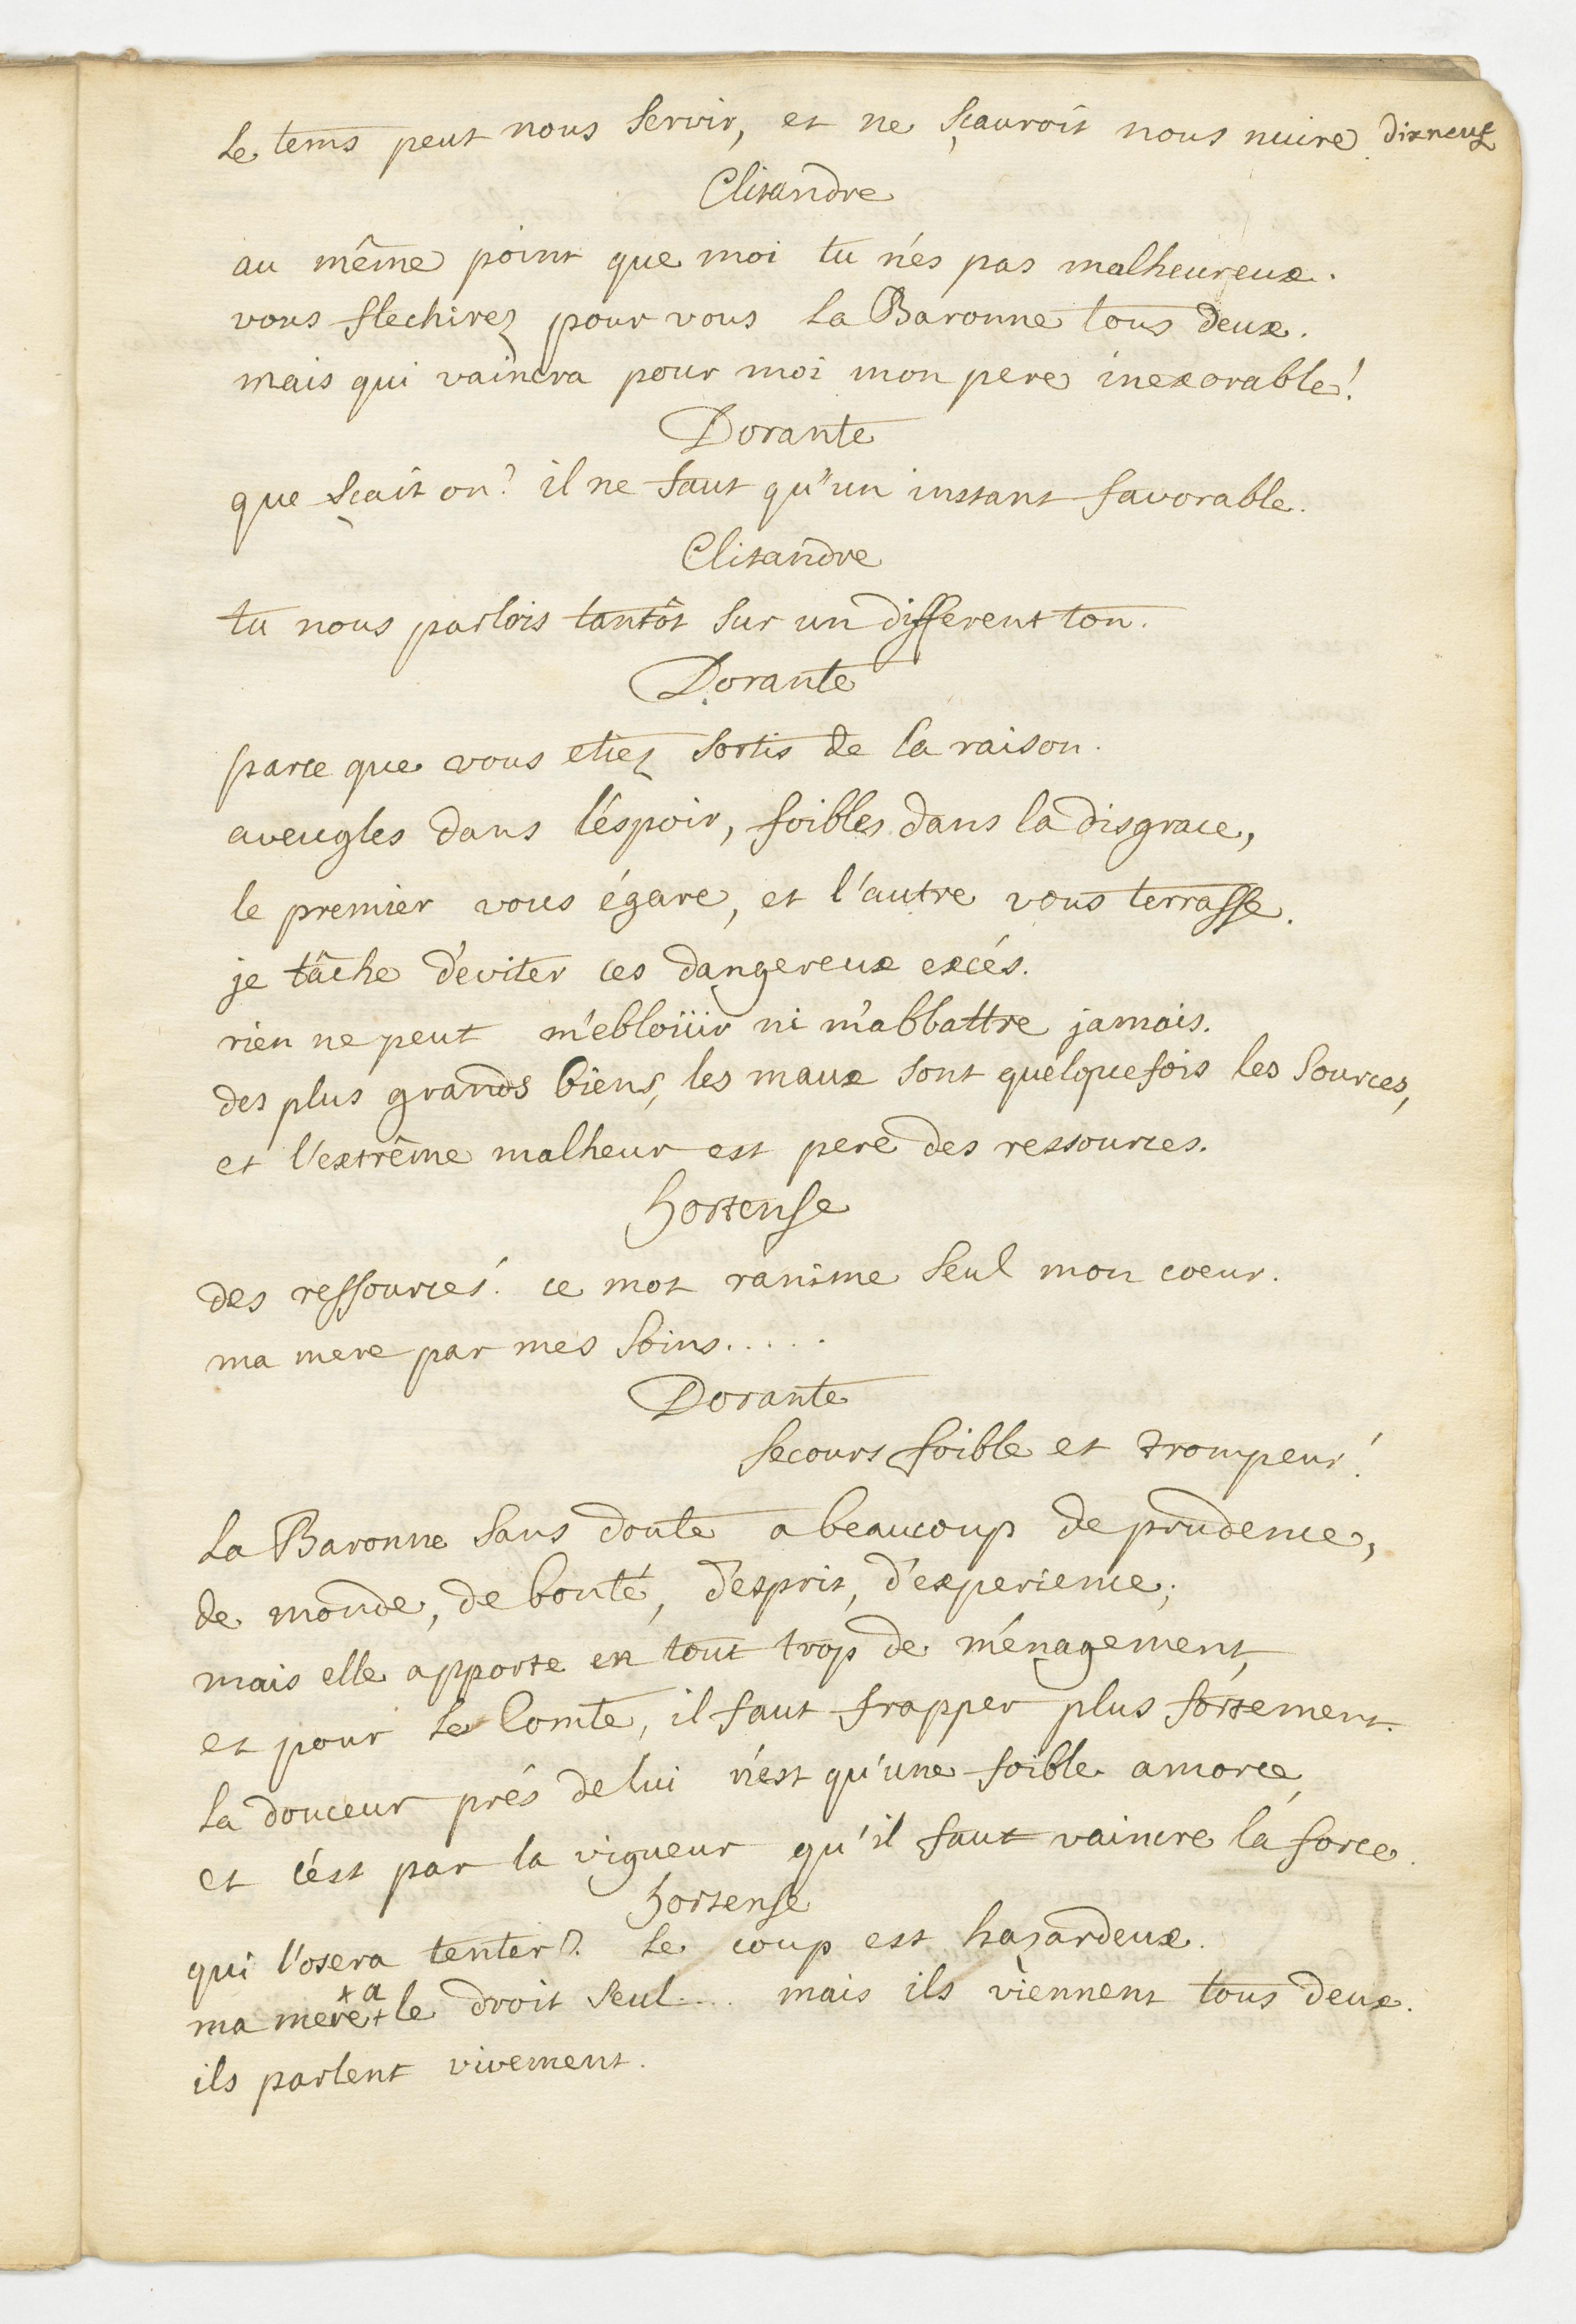 Le tems peut nous servir, et ne sçauroit nous nuire. dixneuf
Clitandre
au même point que moi tu n'és pas malheureux.
vous flechirez pour vous La Baronne tous deux.
mais qui vaincra pour moi mon pere inexorable!
Dorante
que sçait on? il ne faut qu'un instant favorable.
Clitandre
tu nous parlois tantôt sur un different ton.
Dorante
parce que vous etiez sortis de la raison.
aveugles dans l'éspoir, foibles dans la disgrace,
le premier vous égare, et l'autre vous terrasse.
je tâche d'eviter ces dangereux excés.
rien ne peut m'ebloüir ni m'abbattre jamais.
des plus grands biens, les maux sont quelquefois les sources,
et l'extrême malheur est pere des ressources.
hortense
des ressources! ce mot ranime seul mon coeur.
ma mere par mes soins.....
Dorante
secours foible et trompeur!
La Baronne sans doute a beaucoup de prudence,
de monde, de bonté, d'esprit, d'experience;
mais elle apporte en tout trop de ménagement,
et pour Le Comte, il faut frapper plus fortement.
La douceur prés de lui n'est qu'une foible amorce,
et c'ést par la vigueur qu'il faut vaincre la force.
hortense
qui l'osera tenter? Le coup est hazardeux.
+ a
ma mere + le droit seul.... mais ils viennent tous deux.
ils parlent vivement.